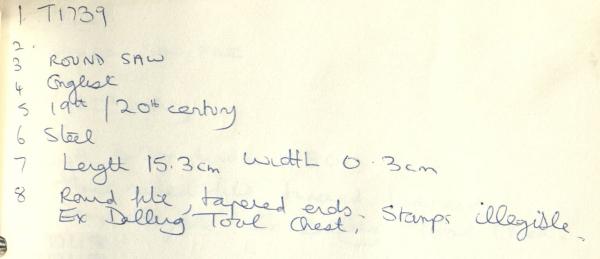 1 T1739
2.
3 ROUND SAW
4 English
5 19th / 20th century
6 Steel
7 Length 15.3cm Width 0.3cm
8 Round file, tapered ends. Stamps illegible.
Ex Delling Tool Chest.